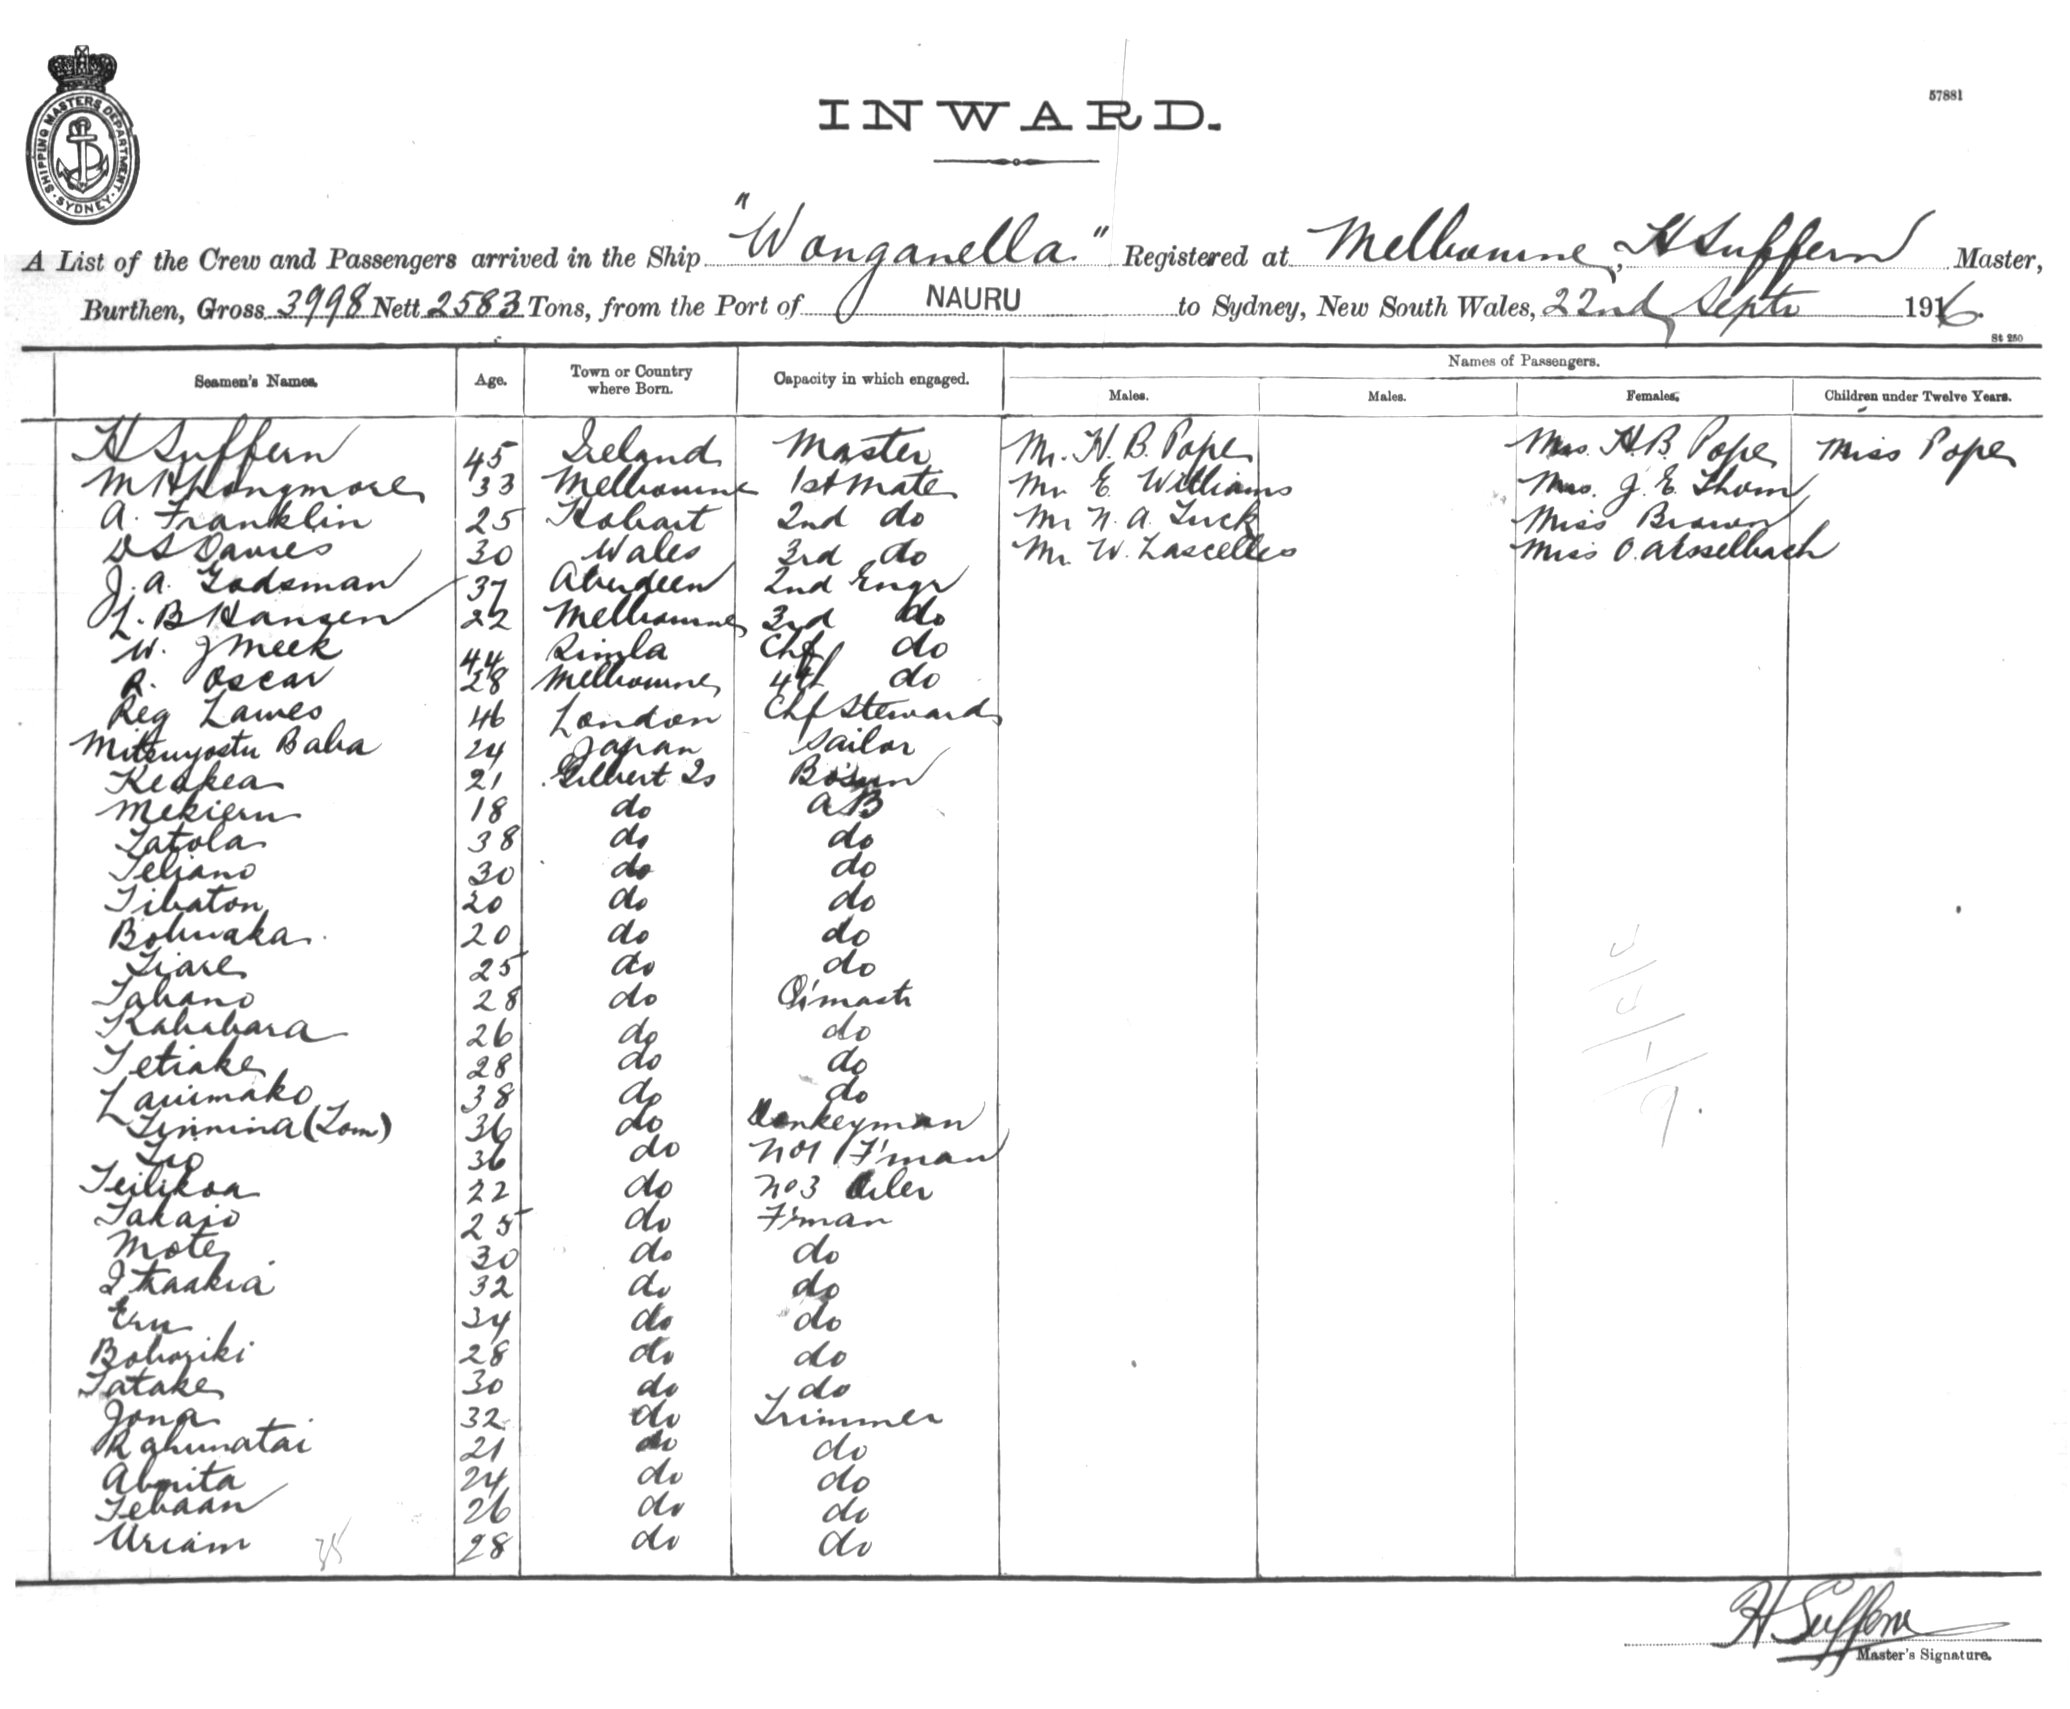 SHIPPING MASTERS DEPARTMENT · SYDNEY ·
57881
INWARD.
A List of the Crew and Passengers arrived in the Ship "Wonganella" Registered at Melbourne, H Suffern Master,
Burthen, Gross 3998 Nett 2583 Tons, from the Port of NAURU to Sydney, New South Wales, 22nd Septr 1916.
St 250
Seamen's Names. Age. Town or Country where Born. Capacity in which engaged. Names of Passengers.
Males. Males. Females. Children under Twelve Years.
H Suffern 45 Ireland Master Mr. H. B. Pope Mrs. H B. Pope Miss Pope
M H Longmore 33 Melbourne 1st Mate Mr E. Williams Mrs. J. E. Thom
A. Franklin 25 Hobart 2nd do Mr N. A. Luck Miss Brown
D S Davies 30 Wales 3rd do Mr W. Lascelles Miss O.
J. A. Godsman 37 Aberdeen 2nd Engr
L. B Hansen 22 Melbourne 3rd do
W. J Meek 44 Chf do
R. Oscar 28 Melbourne 4th do
Reg Lawes 46 London Chf Steward
Baba 24 Japan Sailor
Keakea 21 Gilbert Is Bosun
Mekieru 18 do AB
Tatola 38 do do
Teliano 30 do do
Tibaton 20 do do
20 do do
Tiare 25 do do
Tabano 28 do Q'mastr
Kababara 26 do do
Tetiake 28 do do
38 do do
Tinnina (Tom) 36 do Donkeyman
Tio 36 do No1 F'man
22 do No 3 Oiler
25 do F'man
Mote 30 do do
Itaakia 32 do do
Eru 34 do do
28 do do
Tatake 30 do do
Jona 32 do Trimmer
21 do do
24 do do
Tebaan 26 do do
Uriam 28 do do
35
9.
H Suffern
Master's Signature.